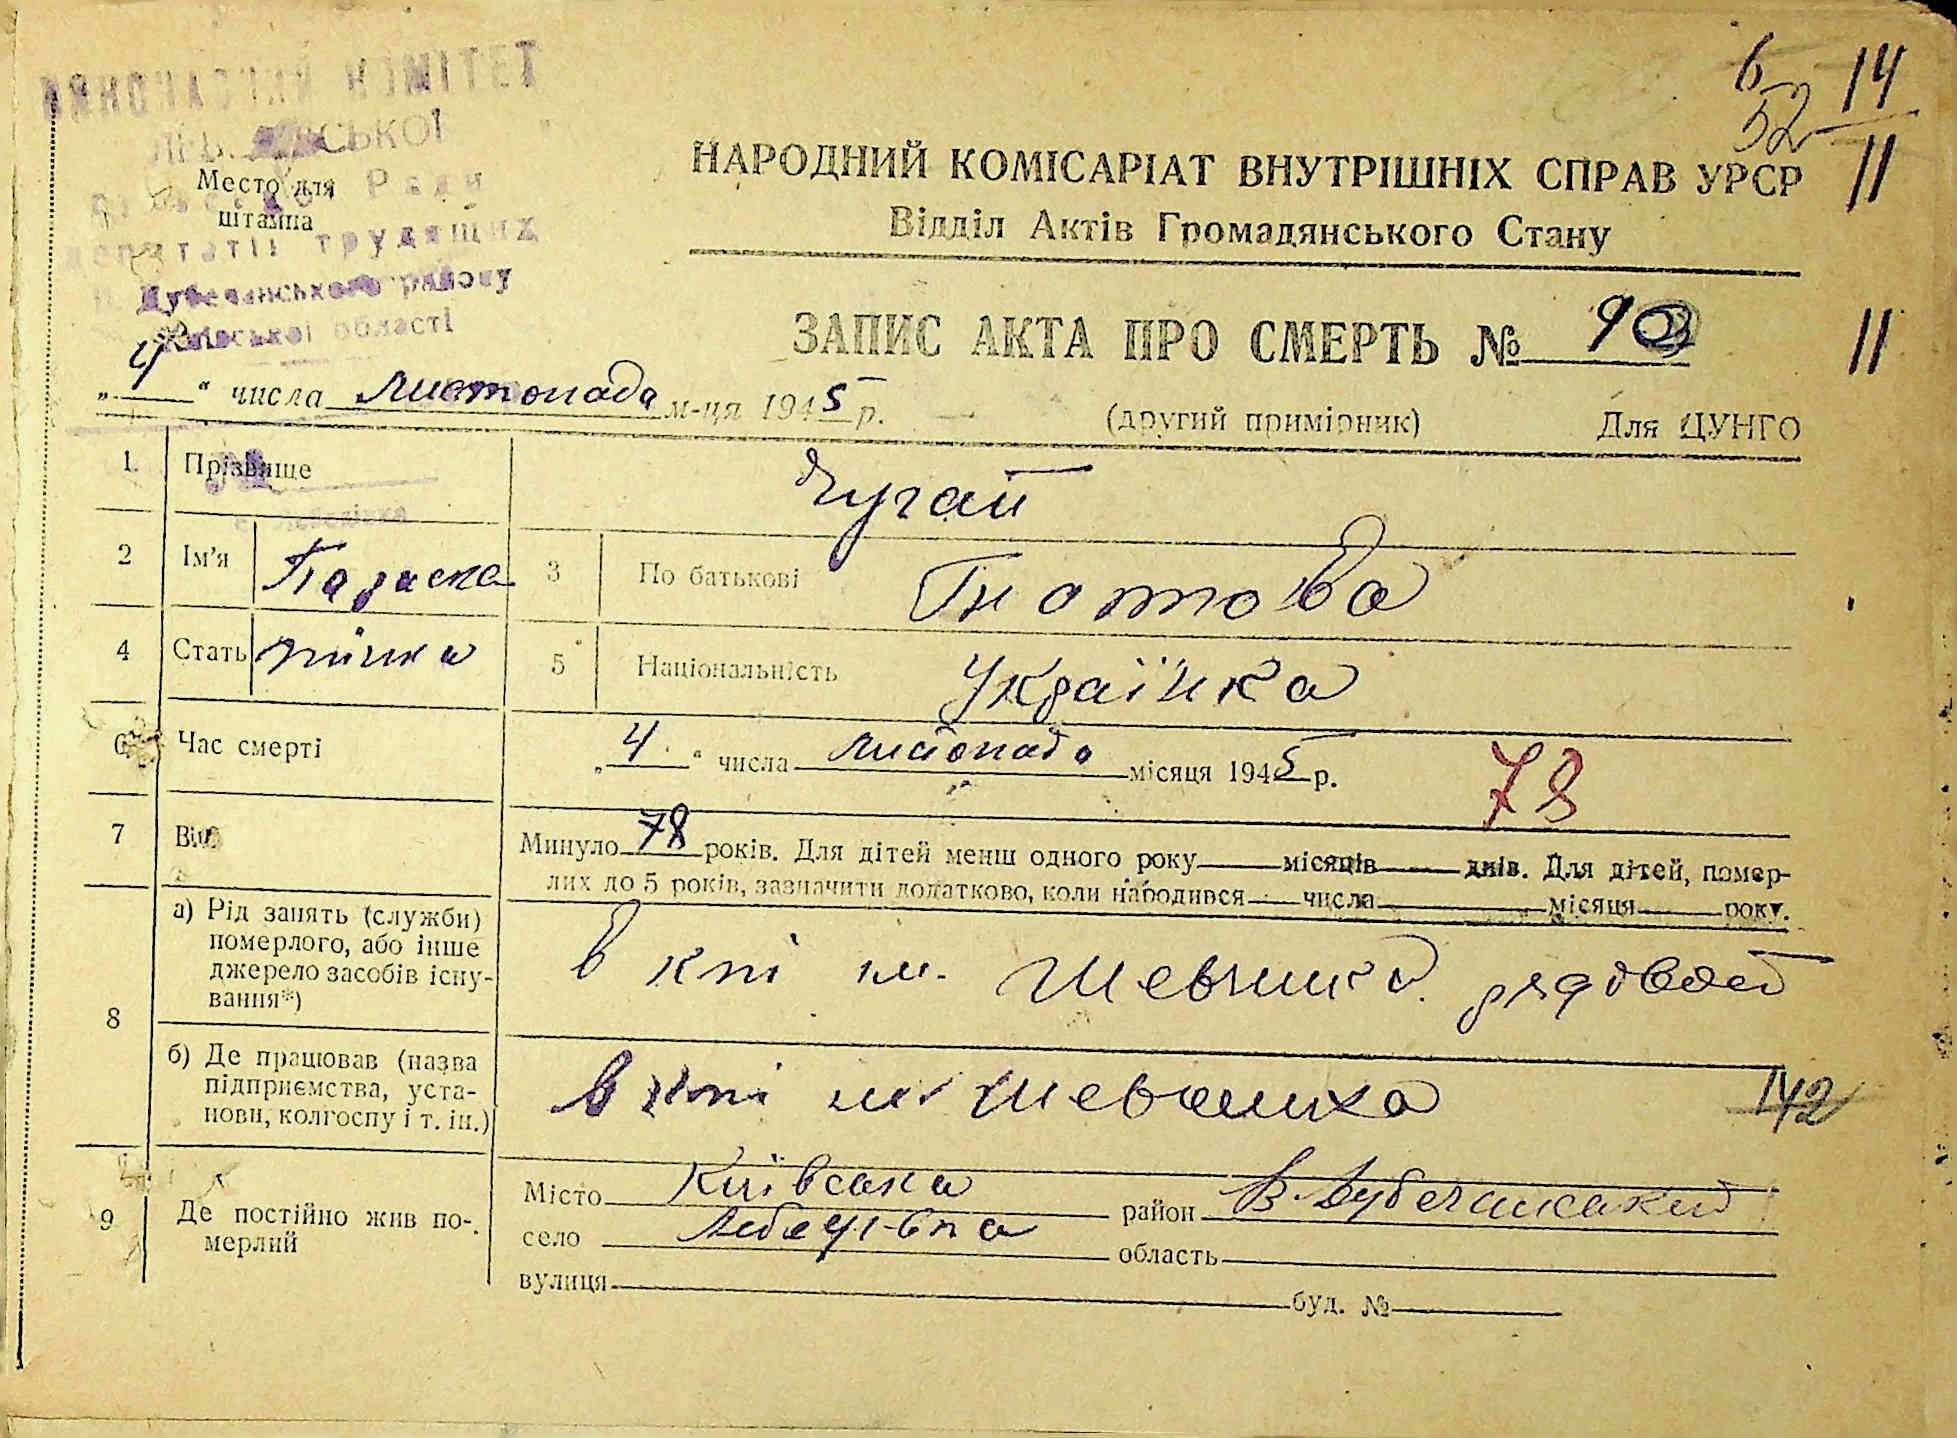 6 14
52 11
Место для
штампа
Ради
депутатів трудящих
Дубечанського району
Київської області
НАРОДНИЙ КОМІСАРІАТ ВНУТРІШНІХ СПРАВ УРСР
Відділ Актів Громадянського Стану
ЗАПИС АКТА ПРО СМЕРТЬ №
11
„ 4 “ числа листопада м-ця 1945 р.
(другий примірник) Для ЦУНГО
1. Прізвище Чугай
2 Ім'я Параска 3 По батькові Гнатова
4 Стать жінка 5 Національність Українка
6 Час смерті „ 4 “ числа листопада місяця 1945 р. 78
7 Вік Минуло 78 років. Для дітей менш одного року місяців днів. Для дітей, помер-
лих до 5 років, зазначити додатково, коли народився числа місяця року.
8 а) Рід занять (служби)
померлого, або інше
джерело засобів існу-
вання*)
в к-пі ім. Шевченка рядовой
б) Де працював (назва
підприємства, уста-
нови, колгоспу і т. ін.)
в к-пі ім. Шевченка 142
9 Де постійно жив по-
мерлий
Місто Київська район В. Дубечанський
село Лебедівка область
вулиця буд. №